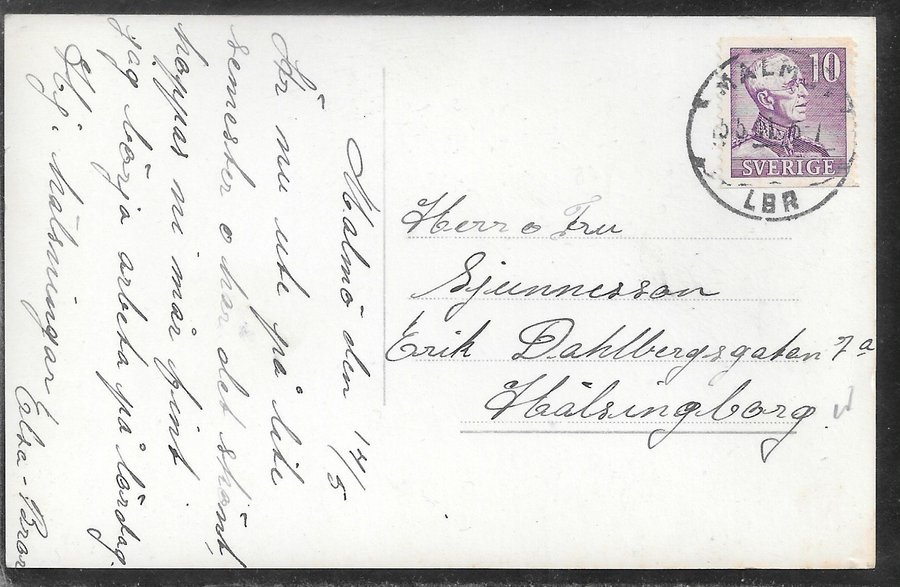 Malmö den 14/5
Är nu ute på lite
semester o har det skönt,
hoppas ni mår fint
jag börja arbeta på lördag.
Hjj. hälsningar Elsa-Bror
10
SVERIGE
MALMÖ
LBR
Herr o Fru
Sjunnesson
Erik Dahlbergsgatan 7a
Hälsingborg